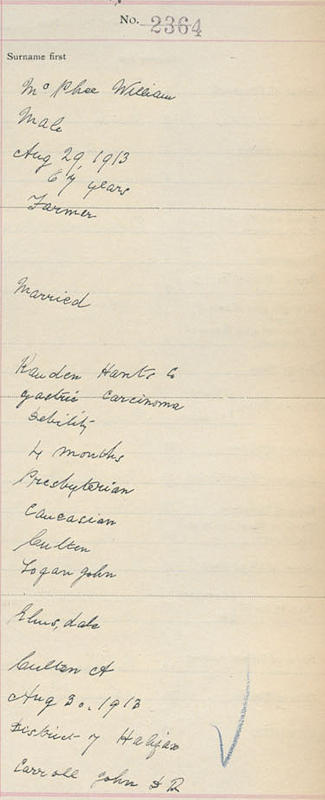 No. 2364
Surname first
Mc Phee William
Male
Aug 29, 1913
67 years
Farmer
Married
Rawden Hants Co
gastric Carcinoma
Debility
4 months
Presbyterian
Caucasian
Culten
Logan John
Elmsdale
Culten A
Aug 30. 1913
District of Halifax
Carroll John D R